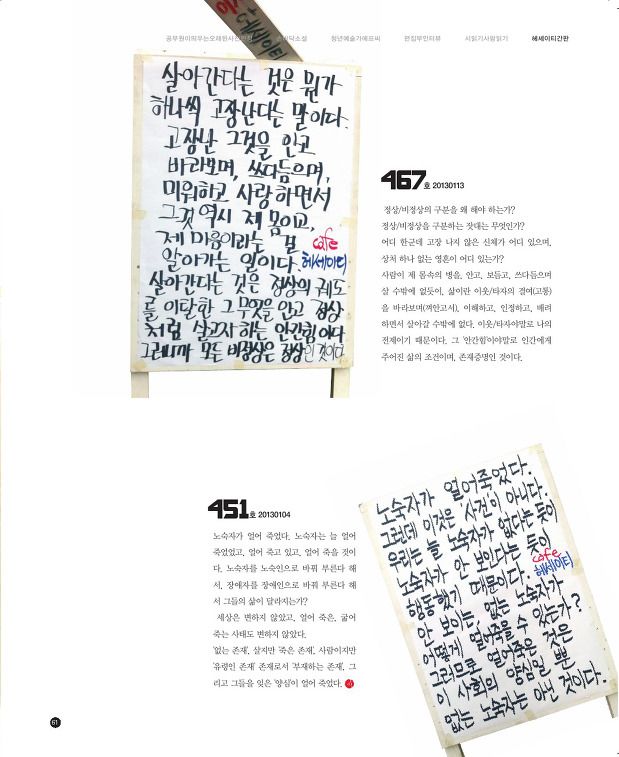 청년예술가에프씨 편집부인터뷰 시읽기사람읽기 헤세이티간판
헤세이티
살아간다는 것은 뭔가
하나씩 고장난다는 말이다.
고장난 그것을 안고
바라보며, 쓰다듬으며,
미워하고 사랑하면서
그것 역시 제 몸이고,
제 마음이라는 걸
알아가는 일이다.
cafe
헤세이티
살아간다는 것은 정상의 궤도
를 이탈한 그 무엇을 안고 정상
처럼 살고자 하는 안간힘이다
그러니까 모든 비정상은 정상인 것이다
467호 20130113
정상/비정상의 구분을 왜 해야 하는가?
정상/비정상을 구분하는 잣대는 무엇인가?
어디 한군데 고장 나지 않은 신체가 어디 있으며,
상처 하나 없는 영혼이 어디 있는가?
사람이 제 몸속의 병을, 안고, 보듬고, 쓰다듬으며
살 수밖에 없듯이, 삶이란 이웃/타자의 결여(고통)
을 바라보며(껴안고서), 이해하고, 인정하고, 배려
하면서 살아갈 수밖에 없다. 이웃/타자야말로 나의
전제이기 때문이다. 그 '안간힘'이야말로 인간에게
주어진 삶의 조건이며, 존재증명인 것이다.
451호 20130104
노숙자가 얼어 죽었다. 노숙자는 늘 얼어
죽었었고, 얼어 죽고 있고, 얼어 죽을 것이
다. 노숙자를 노숙인으로 바꿔 부른다 해
서, 장애자를 장애인으로 바꿔 부른다 해
서 그들의 삶이 달라지는가?
세상은 변하지 않았고, 얼어 죽은, 굶어
죽는 사태도 변하지 않았다.
'없는 존재', 살지만 '죽은 존재', 사람이지만
'유령인 존재' 존재로서 '부재하는 존재', 그
리고 그들을 잊은 '양심'이 얼어 죽었다.
노숙자가 얼어죽었다.
그런데 이것은 '사건'이 아니다.
우리는 늘 노숙자가 없다는 듯이
노숙자가 안 보인다는 듯이
행동했기 때문이다.
cafe
헤세이티
안 보이는, 없는 노숙자가
어떻게 얼어죽을 수 있는가?
그러므로 얼어죽은 것은
이 사회의 양심일 뿐
없는 노숙자는 아닌 것이다.
61